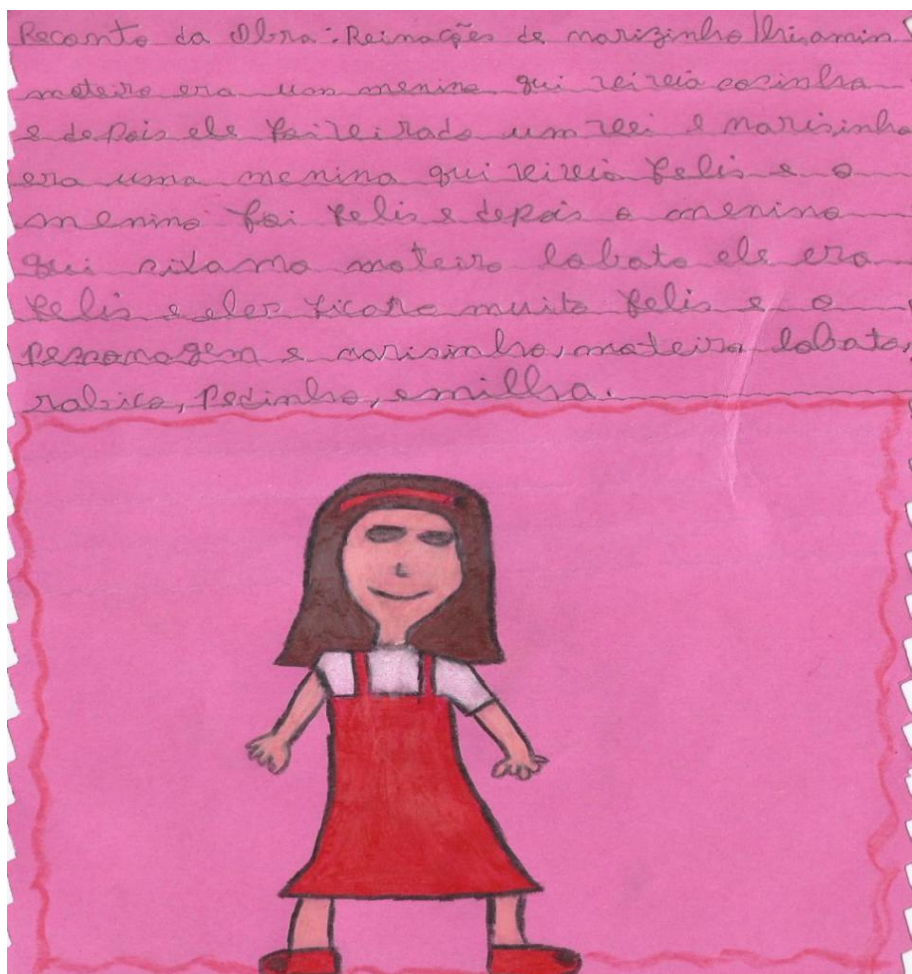 Reconto da Obra: Reinações de narizinho
moteiro era um menino qui veiveia cosinha
e depois ele foi virado um rei e narisinho
era uma menina qui veiveia felis e o
menino foi felis e depois o menino
qui moteiro lobato ele era
felis e eles ficaro muito felis e o
personagem e narisinho, moteiro lobato,
rabico, Pedinho, emillha.